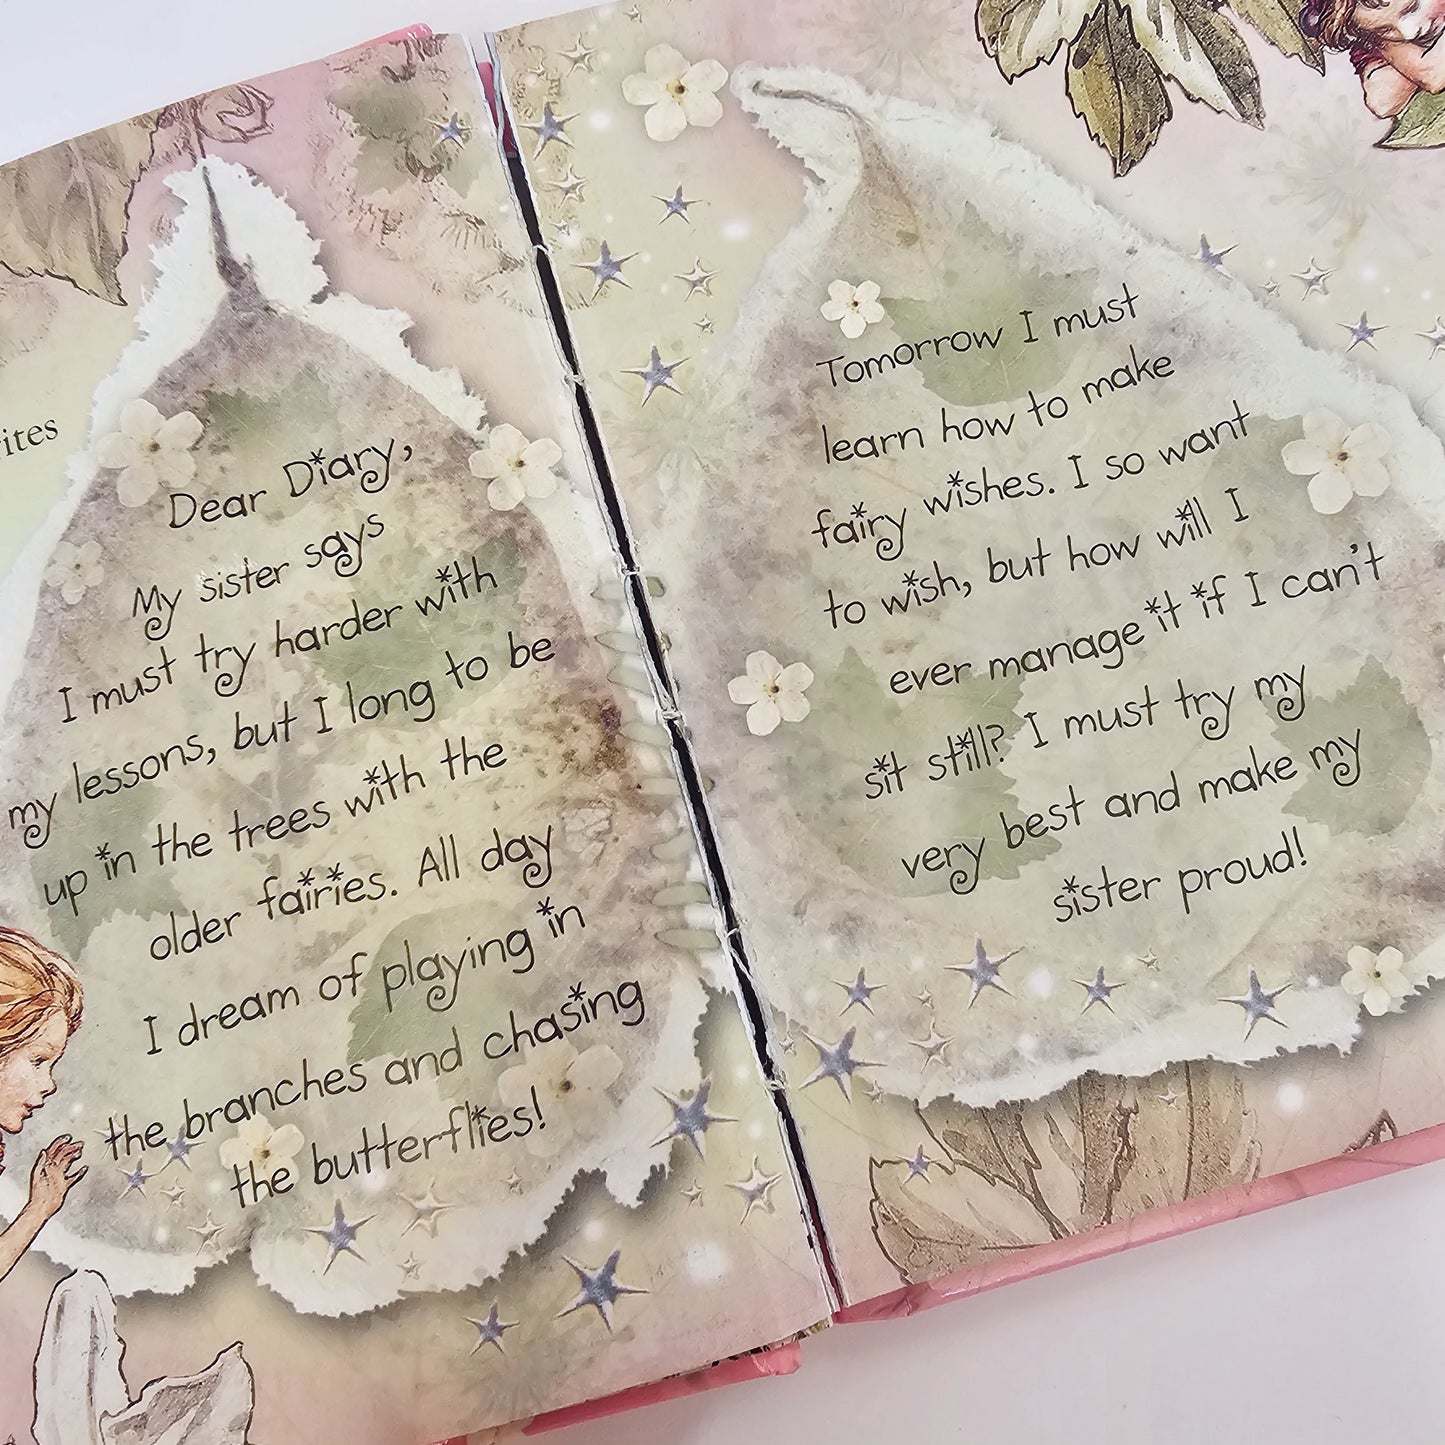 Dear Diary,
My sister says
I must try harder with
my lessons, but I long to be
up in the trees with the
older fairies. All day
I dream of playing in
the branches and chasing
the butterflies!
Tomorrow I must
learn how to make
fairy wishes. I so want
to wish, but how will I
ever manage it if I can't
sit still? I must try my
very best and make my
sister proud!